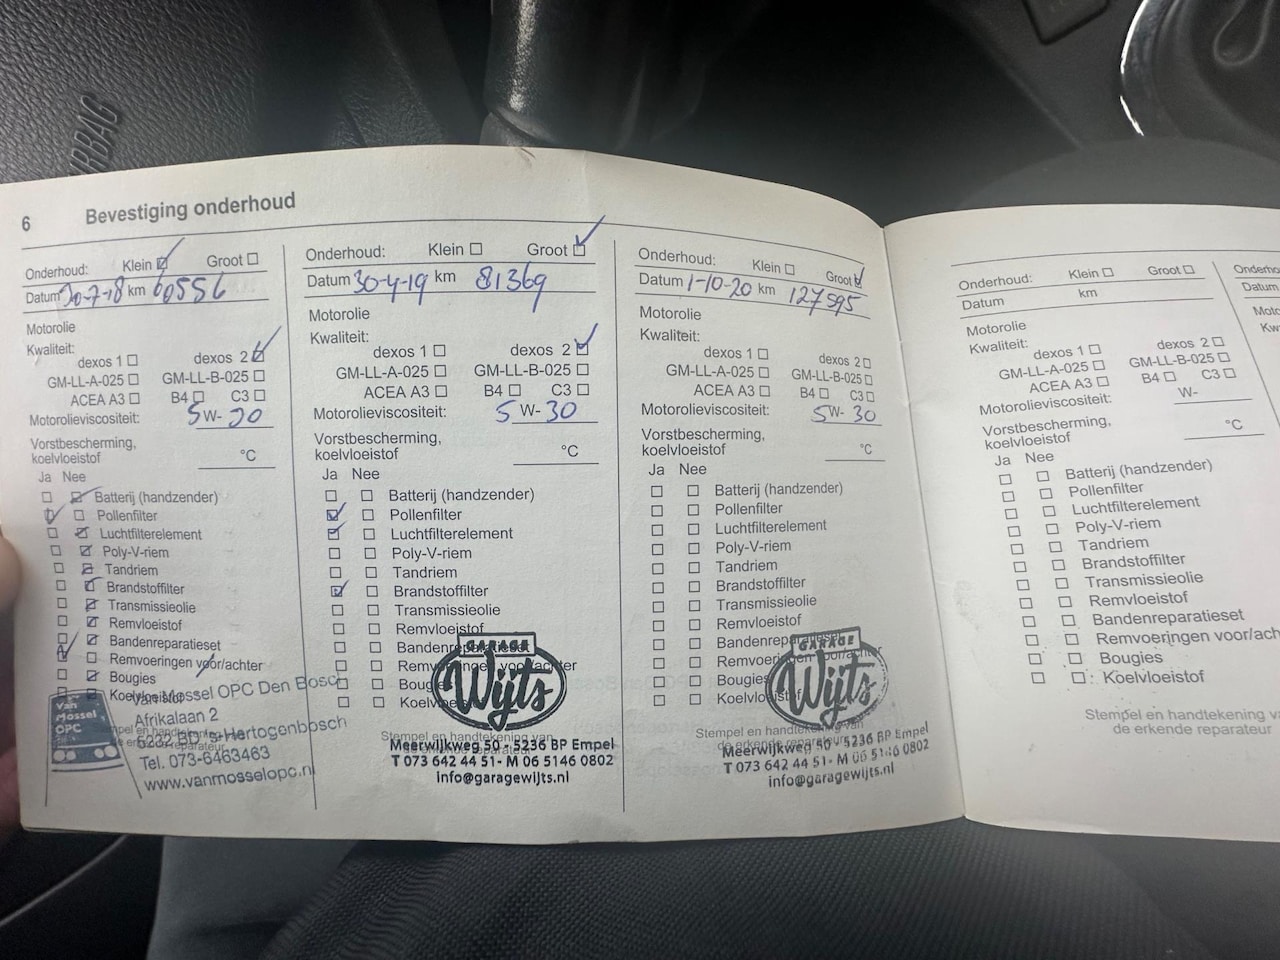 6 Bevestiging onderhoud
Onderhoud: Klein Groot
Datum 30-7-18 km 60556
Motorolie
Kwaliteit:
dexos 1 dexos 2
GM-LL-A-025 GM-LL-B-025
ACEA A3 B4 C3
Motorolieviscositeit: 5 W- 30
Vorstbescherming,
koelvloeistof °C
Ja Nee
Batterij (handzender)
Pollenfilter
Luchtfilterelement
Poly-V-riem
Tandriem
Brandstoffilter
Transmissieolie
Remvloeistof
Bandenreparatieset
Remvoeringen voor/achter
Bougies
Koelvloeistof
Van Mossel OPC
Van Mossel OPC Den Bosch
Afrikalaan 2
5222 BD 's-Hertogenbosch
Tel. 073-6463463
www.vanmosselopc.nl
Onderhoud: Klein Groot
Datum 30-4-19 km 81369
Motorolie
Kwaliteit:
dexos 1 dexos 2
GM-LL-A-025 GM-LL-B-025
ACEA A3 B4 C3
Motorolieviscositeit: 5 W- 30
Vorstbescherming,
koelvloeistof °C
Ja Nee
Batterij (handzender)
Pollenfilter
Luchtfilterelement
Poly-V-riem
Tandriem
Brandstoffilter
Transmissieolie
Remvloeistof
Bandenreparatieset
Remvoeringen voor/achter
Bougies
Koelvloeistof
Stempel en handtekening van
GARAGE
Wijts
Meerwijkweg 50 - 5236 BP Empel
T 073 642 44 51 - M 06 5146 0802
info@garagewijts.nl
Onderhoud: Klein Groot
Datum 1-10-20 km 127595
Motorolie
Kwaliteit:
dexos 1 dexos 2
GM-LL-A-025 GM-LL-B-025
ACEA A3 B4 C3
Motorolieviscositeit: 5 W- 30
Vorstbescherming,
koelvloeistof °C
Ja Nee
Batterij (handzender)
Pollenfilter
Luchtfilterelement
Poly-V-riem
Tandriem
Brandstoffilter
Transmissieolie
Remvloeistof
Bandenreparatieset
Remvoeringen voor/achter
Bougies
Koelvloeistof
Stempel en handtekening van
de erkende reparateur
GARAGE
Wijts
Meerwijkweg 50 - 5236 BP Empel
T 073 642 44 51 - M 06 5146 0802
info@garagewijts.nl
Onderhoud: Klein Groot
Datum km
Motorolie
Kwaliteit:
dexos 1 dexos 2
GM-LL-A-025 GM-LL-B-025
ACEA A3 B4 C3
Motorolieviscositeit: W-
Vorstbescherming,
koelvloeistof °C
Ja Nee
Batterij (handzender)
Pollenfilter
Luchtfilterelement
Poly-V-riem
Tandriem
Brandstoffilter
Transmissieolie
Remvloeistof
Bandenreparatieset
Remvoeringen voor/ach
Bougies
Koelvloeistof
Stempel en handtekening va
de erkende reparateur
Onderho
Datum
Moto
Kw